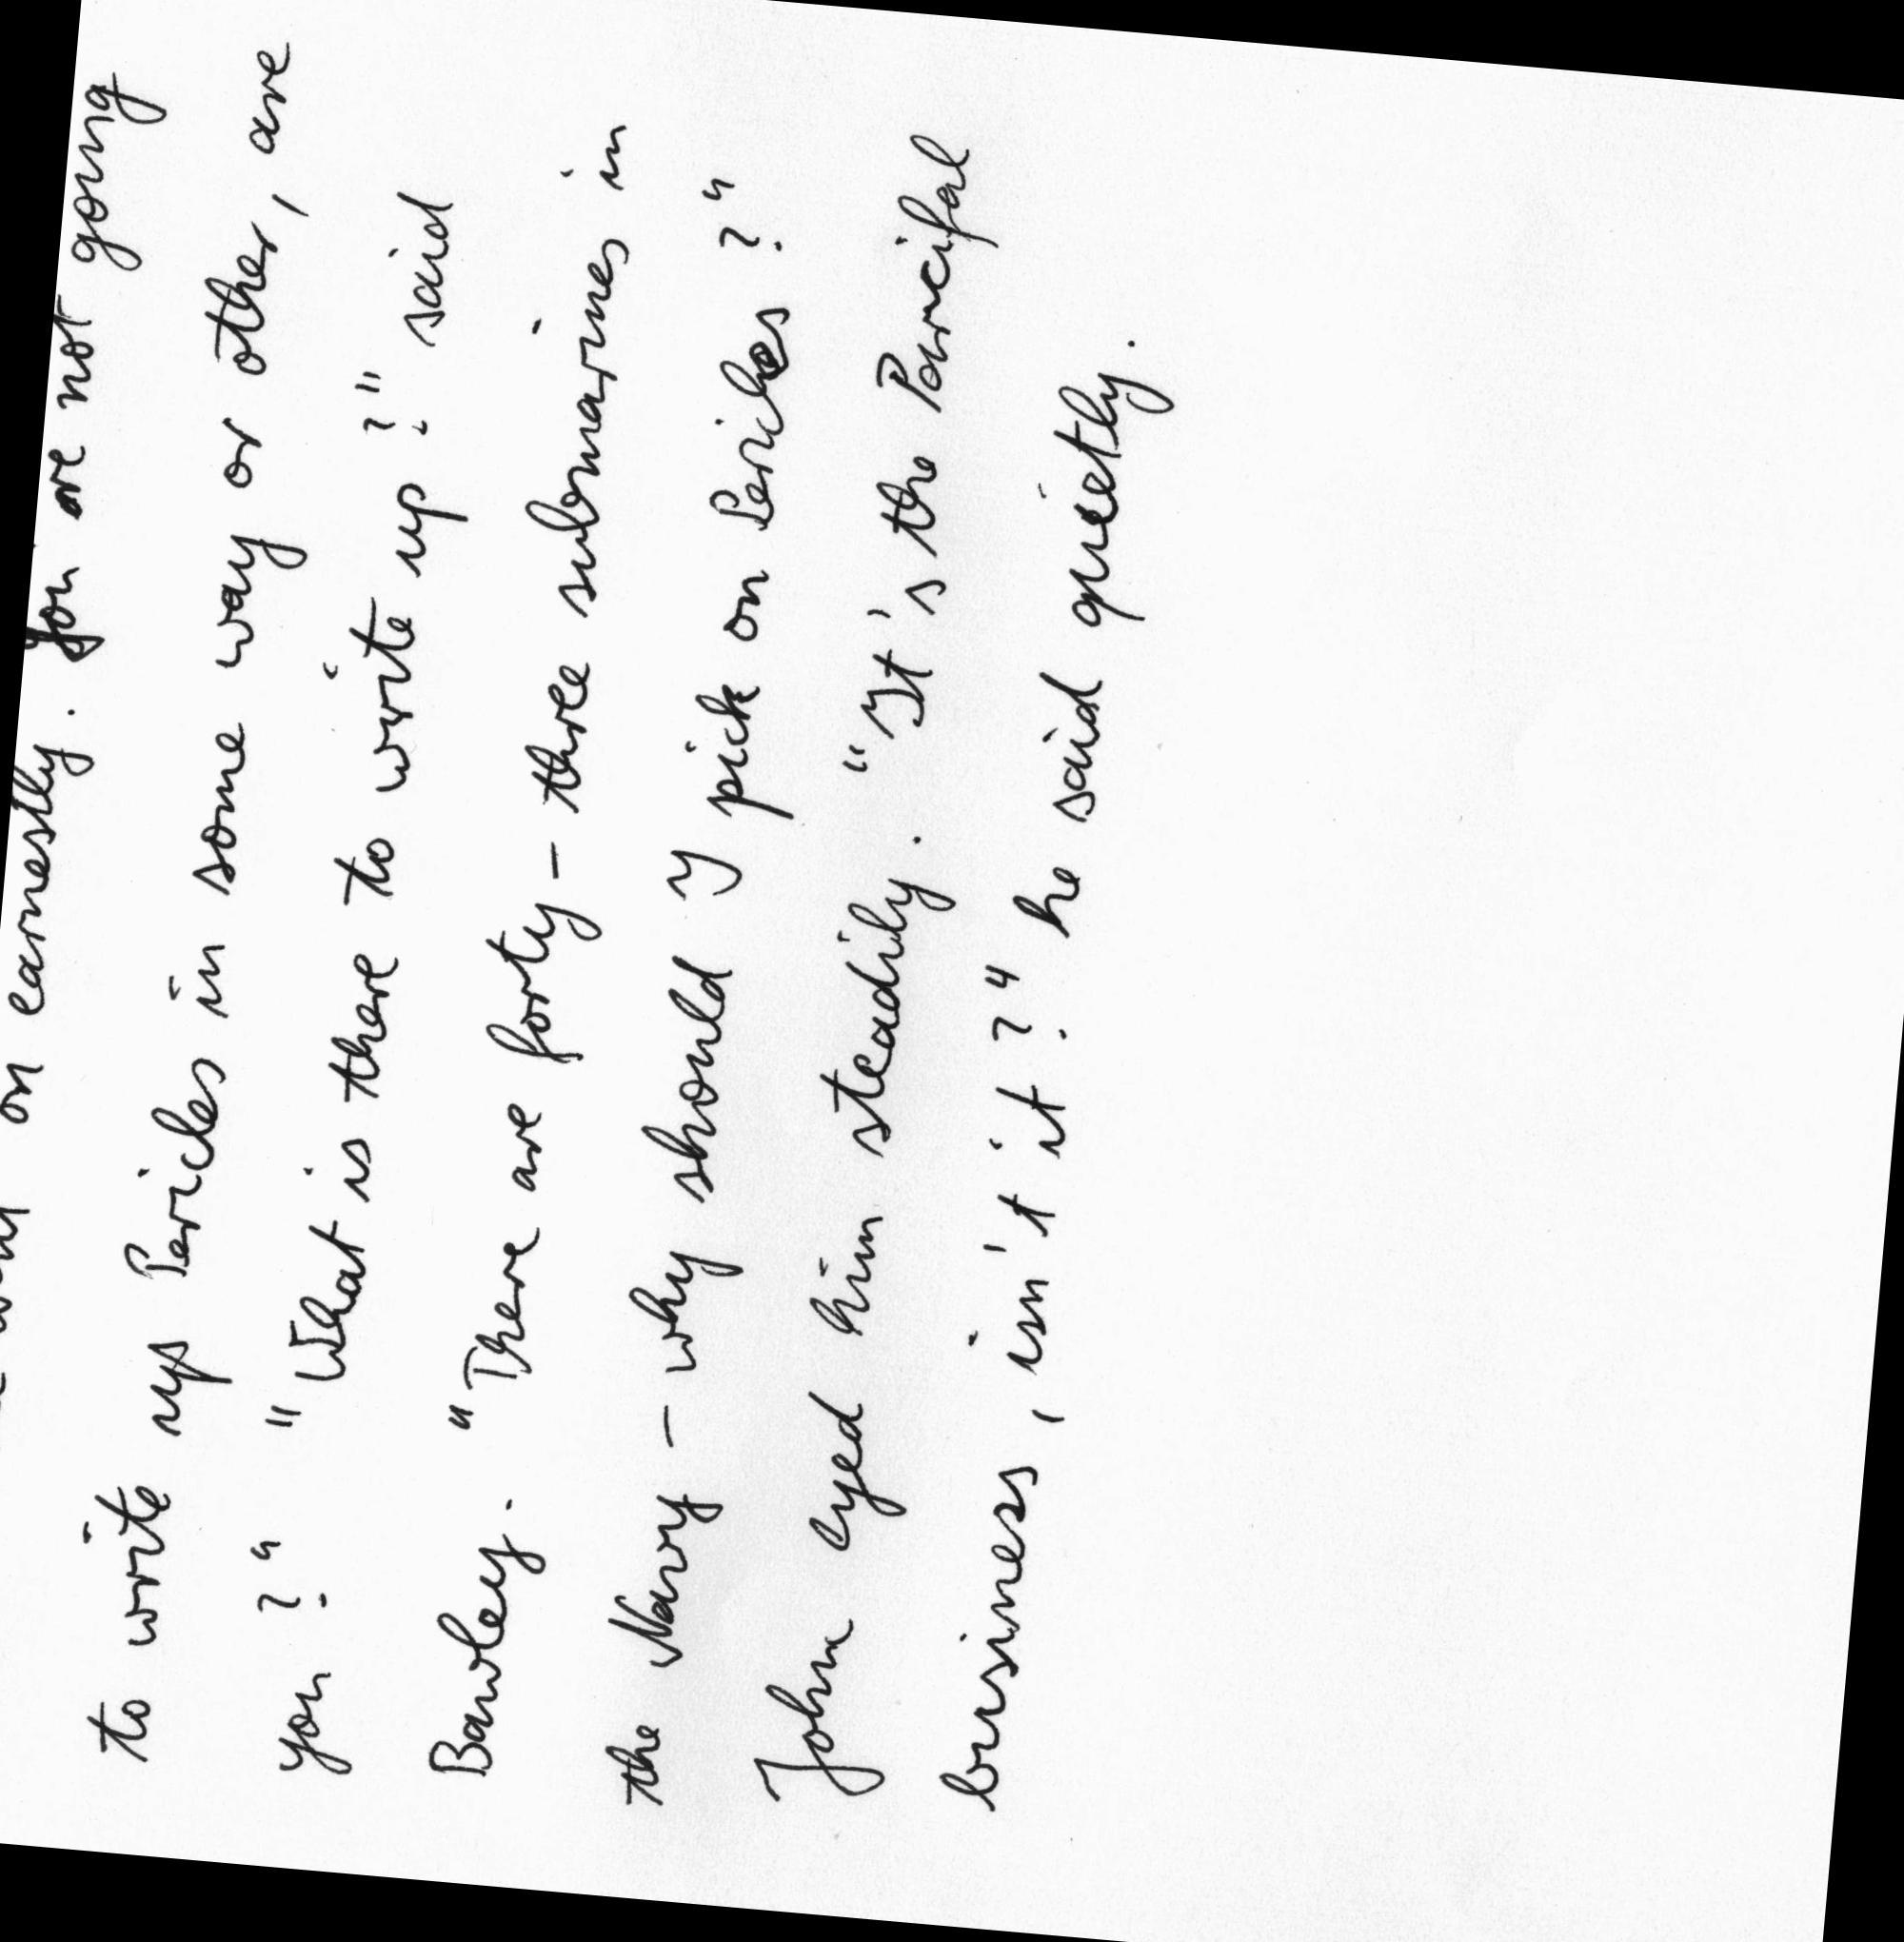 on earnestly. You are not going
to write up Pericles in some way or other, are
you?" "What is there to write up?" said
Bawley. "There are forty-three submarines in
the Navy - why should I pick on Pericles?"
John eyed him steadily. "It's the Parcifal
business, isn't it?" he said quietly.